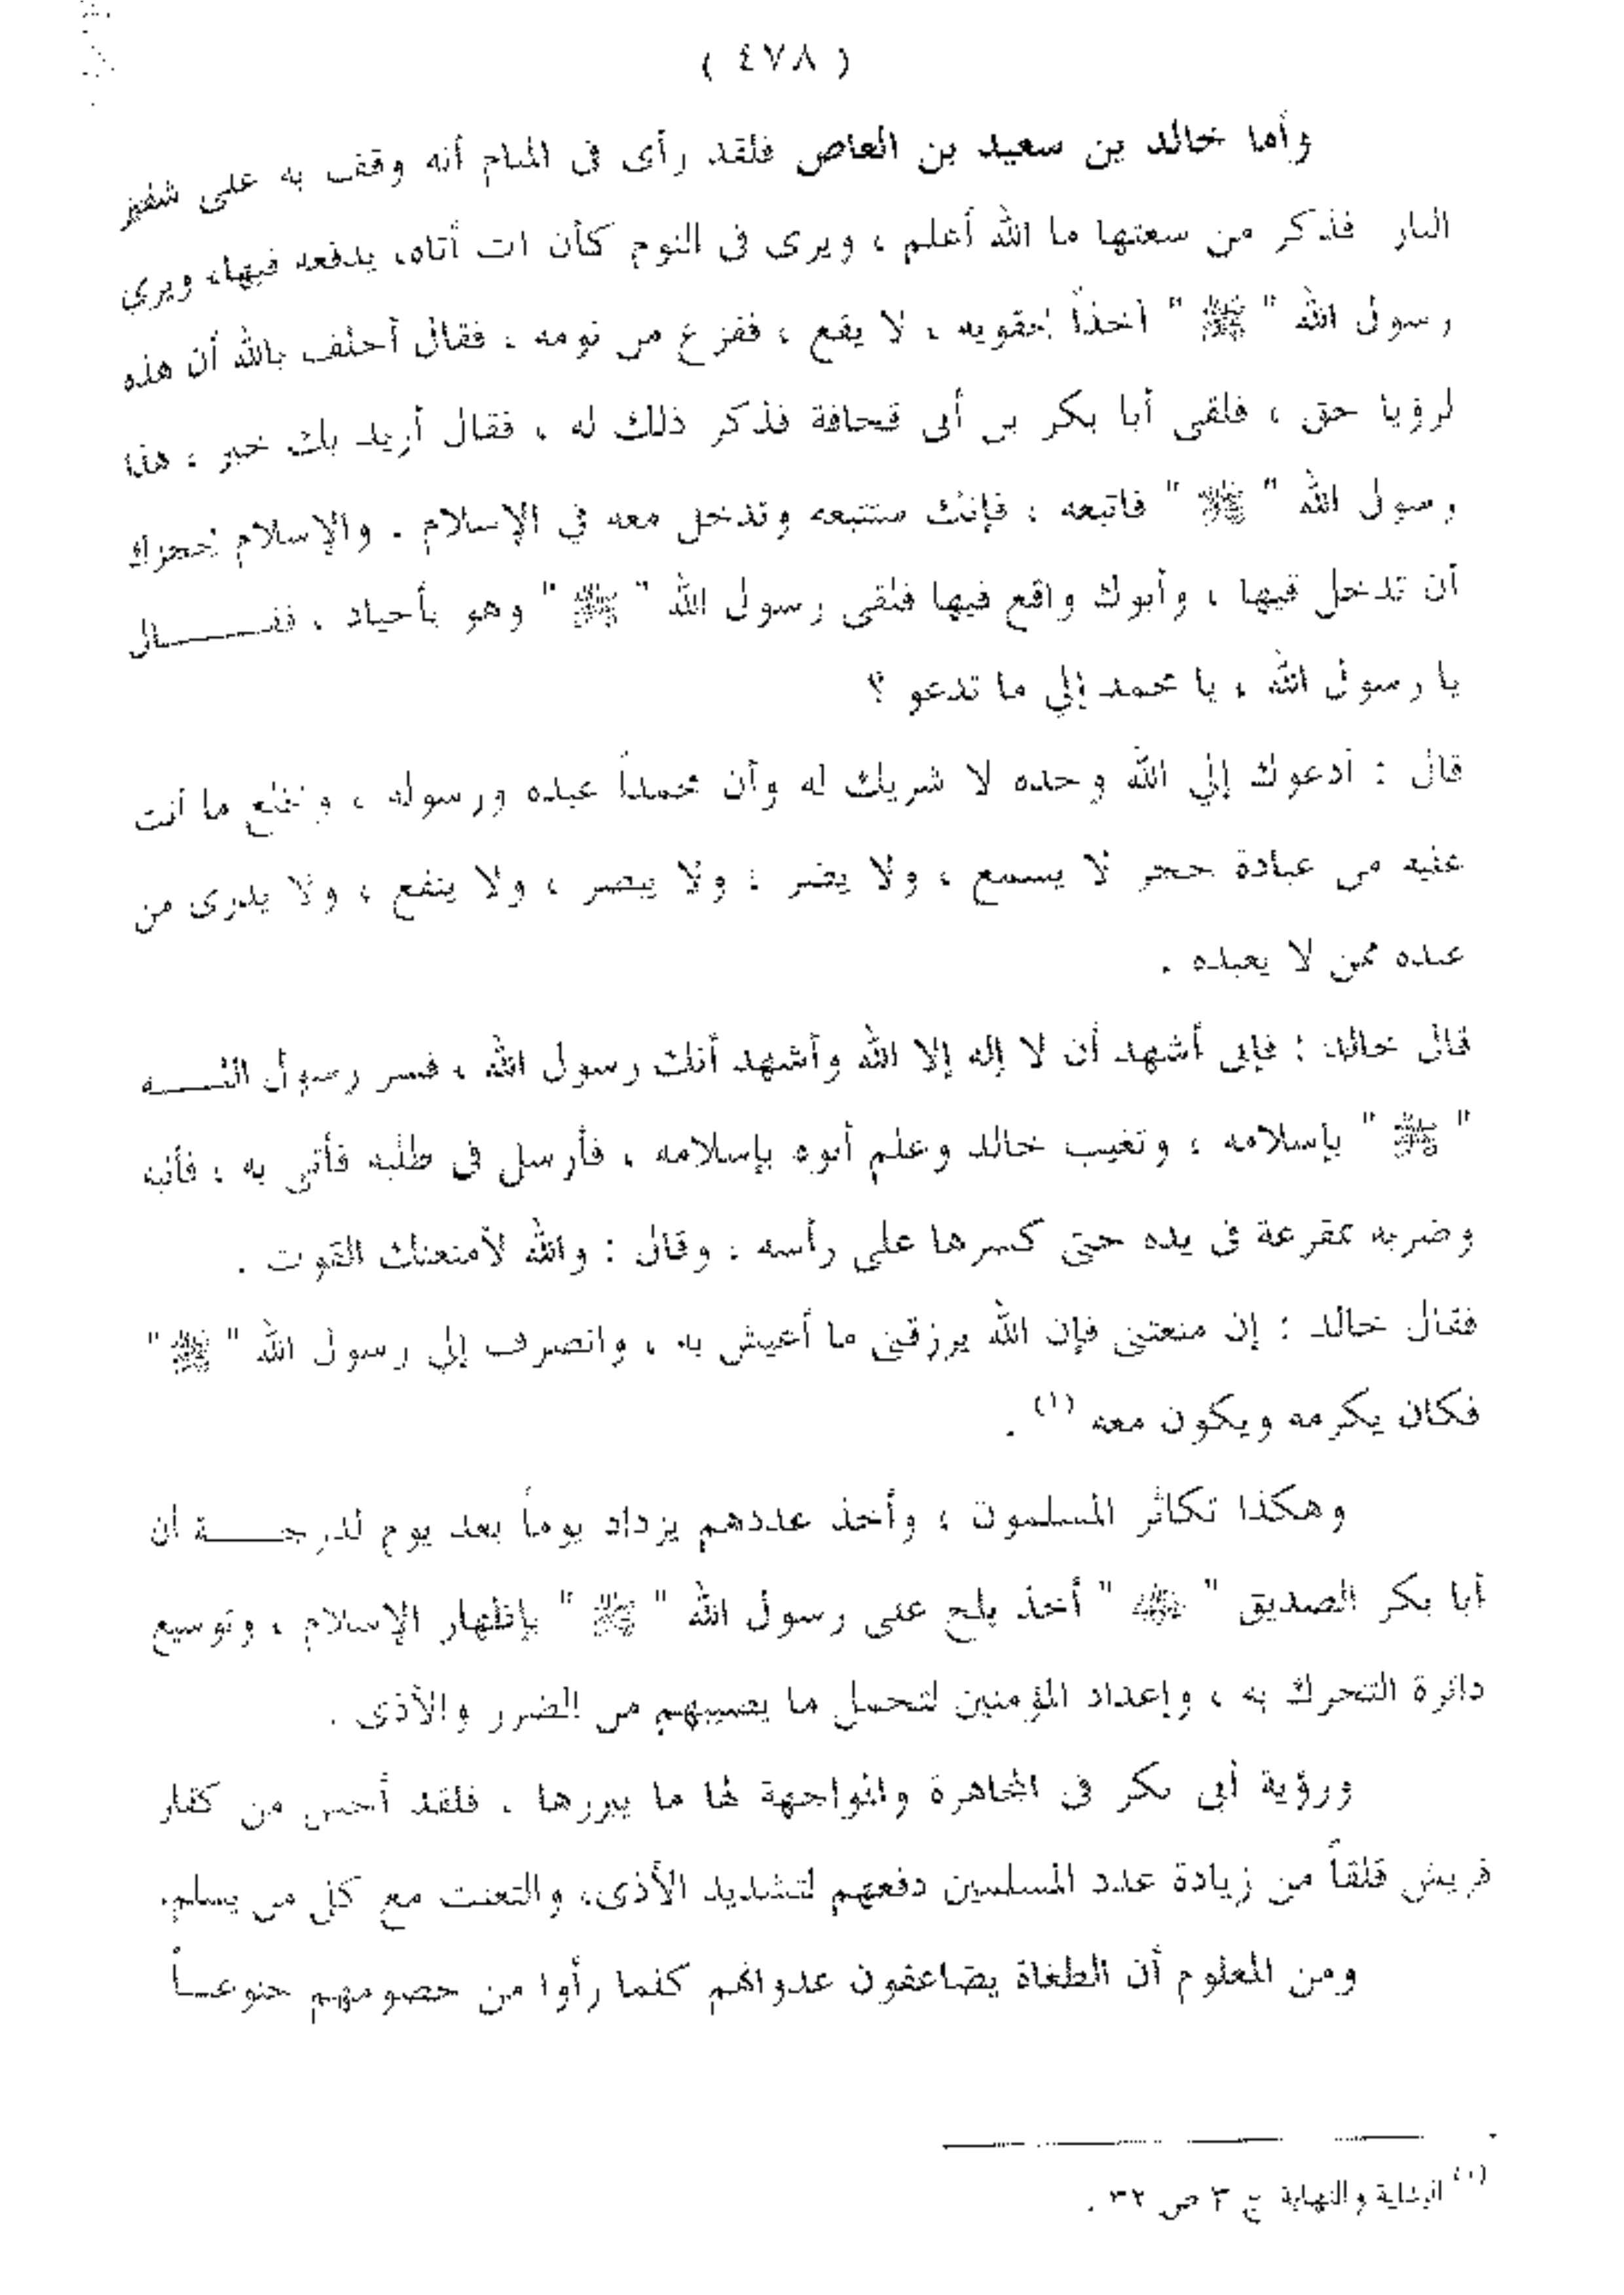 ( ٤٧٨ )
وأما خالد بن سعيد بن العاص فلقد رأى فى المنام أنه وقف به على شفير
النار فذكر من سعتها ما الله أعلم ، ويرى فى النوم كأن آت أتاه، يدفعه فيها، ويرى
رسول الله " ﷺ " آخذاً بحقويه ، لا يقع ، ففزع من نومه ، فقال أحلف بالله أن هذه
لرؤيا حق ، فلقى أبا بكر بن أبى قحافة فذكر ذلك له ، فقال أريد بك خير ، هذا
رسول الله " ﷺ " فاتبعه ، فإنك ستتبعه وتدخل معه في الإسلام . والإسلام يحجزك
أن تدخل فيها ، وأبوك واقع فيها فلقى رسول الله " ﷺ " وهو بأجياد ، فقـــــال
يا رسول الله ، يا محمد إلي ما تدعو ؟
قال : أدعوك إلي الله وحده لا شريك له وأن محمداً عبده ورسوله ، وتخلع ما أنت
عليه من عبادة حجر لا يسمع ، ولا يضر ، ولا يبصر ، ولا ينفع ، ولا يدرى من
عبده ممن لا يعبده .
قال خالد : فإنى أشهد أن لا إله إلا الله وأشهد أنك رسول الله ، فسر رسول اللـــه
" ﷺ " بإسلامه ، وتغيب خالد وعلم أبوه بإسلامه ، فأرسل فى طلبه فأتى به ، فأنبه
وضربه بمقرعة فى يده حتى كسرها على رأسه ، وقال : والله لأمنعنك القوت .
فقال خالد : إن منعتنى فإن الله يرزقنى ما أعيش به ، وانصرف إلي رسول الله " ﷺ "
فكان يكرمه ويكون معه (١) .
وهكذا تكاثر المسلمون ، وأخذ عددهم يزداد يوماً بعد يوم لدرجـــــة أن
أبا بكر الصديق " ﵁ " أخذ يلح على رسول الله " ﷺ " بإظهار الإسلام ، وتوسيع
دائرة التحرك به ، وإعداد المؤمنين لتحمل ما يصيبهم من الضرر والأذى .
ورؤية أبى بكر فى المجاهرة والمواجهة لها ما يبررها ، فلقد أحس من كفار
قريش قلقاً من زيادة عدد المسلمين دفعهم لتشديد الأذى، والتعنت مع كل من يسلم.
ومن المعلوم أن الطغاة يضاعفون عدوانهم كلما رأوا من خصومهم خنوعـاً
(١) البداية والنهاية ج ٣ ص ٣٢ .